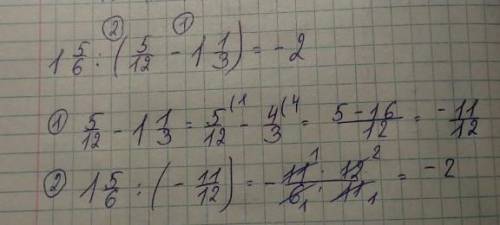 ② ①
1 5/6 : (5/12 - 1 1/3) = -2
① 5/12 - 1 1/3 = 5/12 (1 - 4/3 (4 = 5-16/12 = -11/12
② 1 5/6 : (- 11/12) = - 11 1 · 12 2 / 6 1 · 11 1 = -2